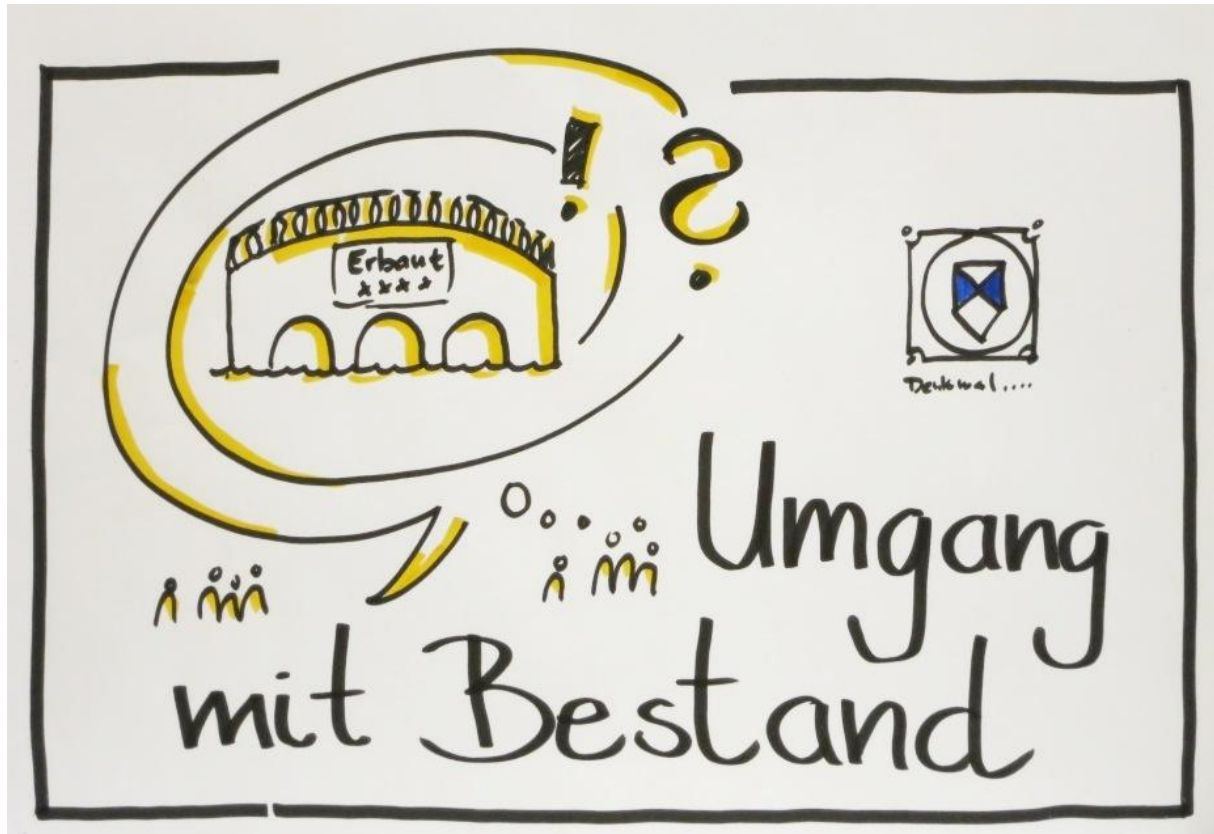 !
?
Erbaut
****
Denkmal....
Umgang
mit Bestand